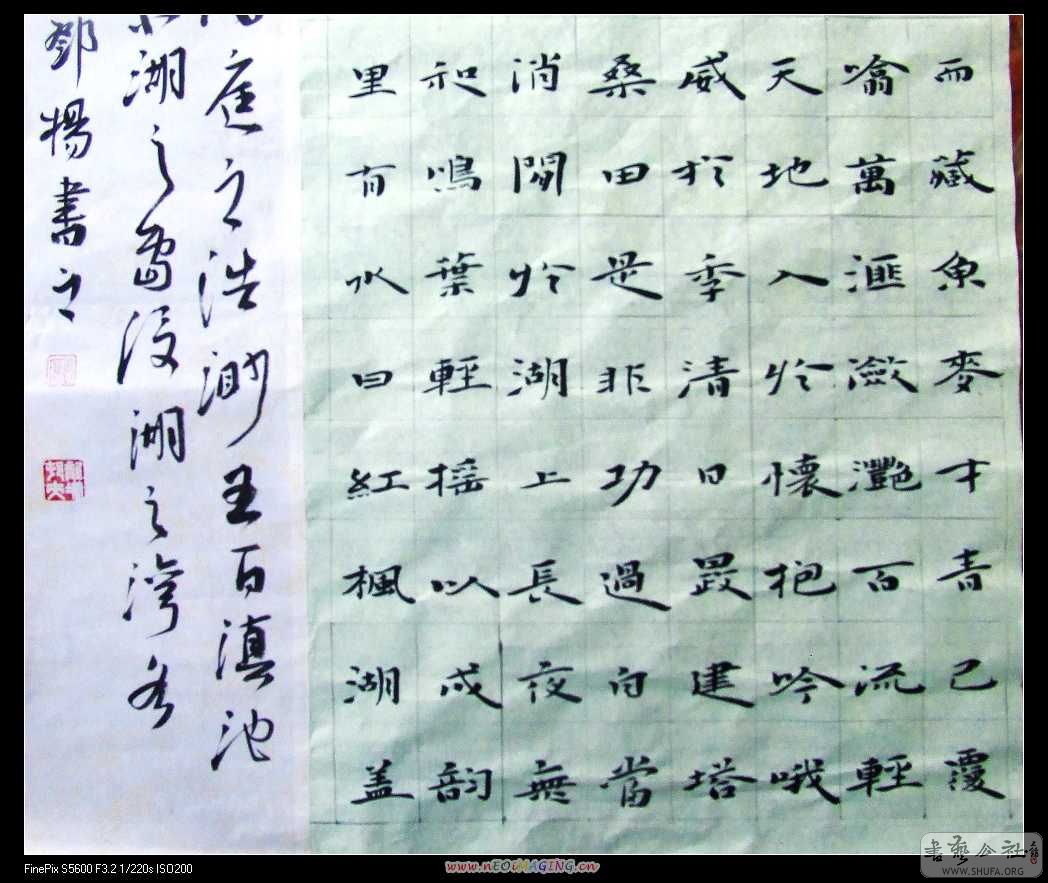 而藏魚麥才青已覆
噏萬滙瀲灧百流輕
天地入於懷抱吟哦
威於季清日最建塔
桑田是非功過自當
消閒於湖上長夜無
和鳴葉輕搖以成韵
里有水曰紅楓湖盖
庭之浩渺五百滇池
湖之島後湖之灣
鄧楊書之
書藝公社
WWW.SHUFA.ORG
FinePix S5600 F3.2 1/220s ISO200
www.nEOiMAGING.cn